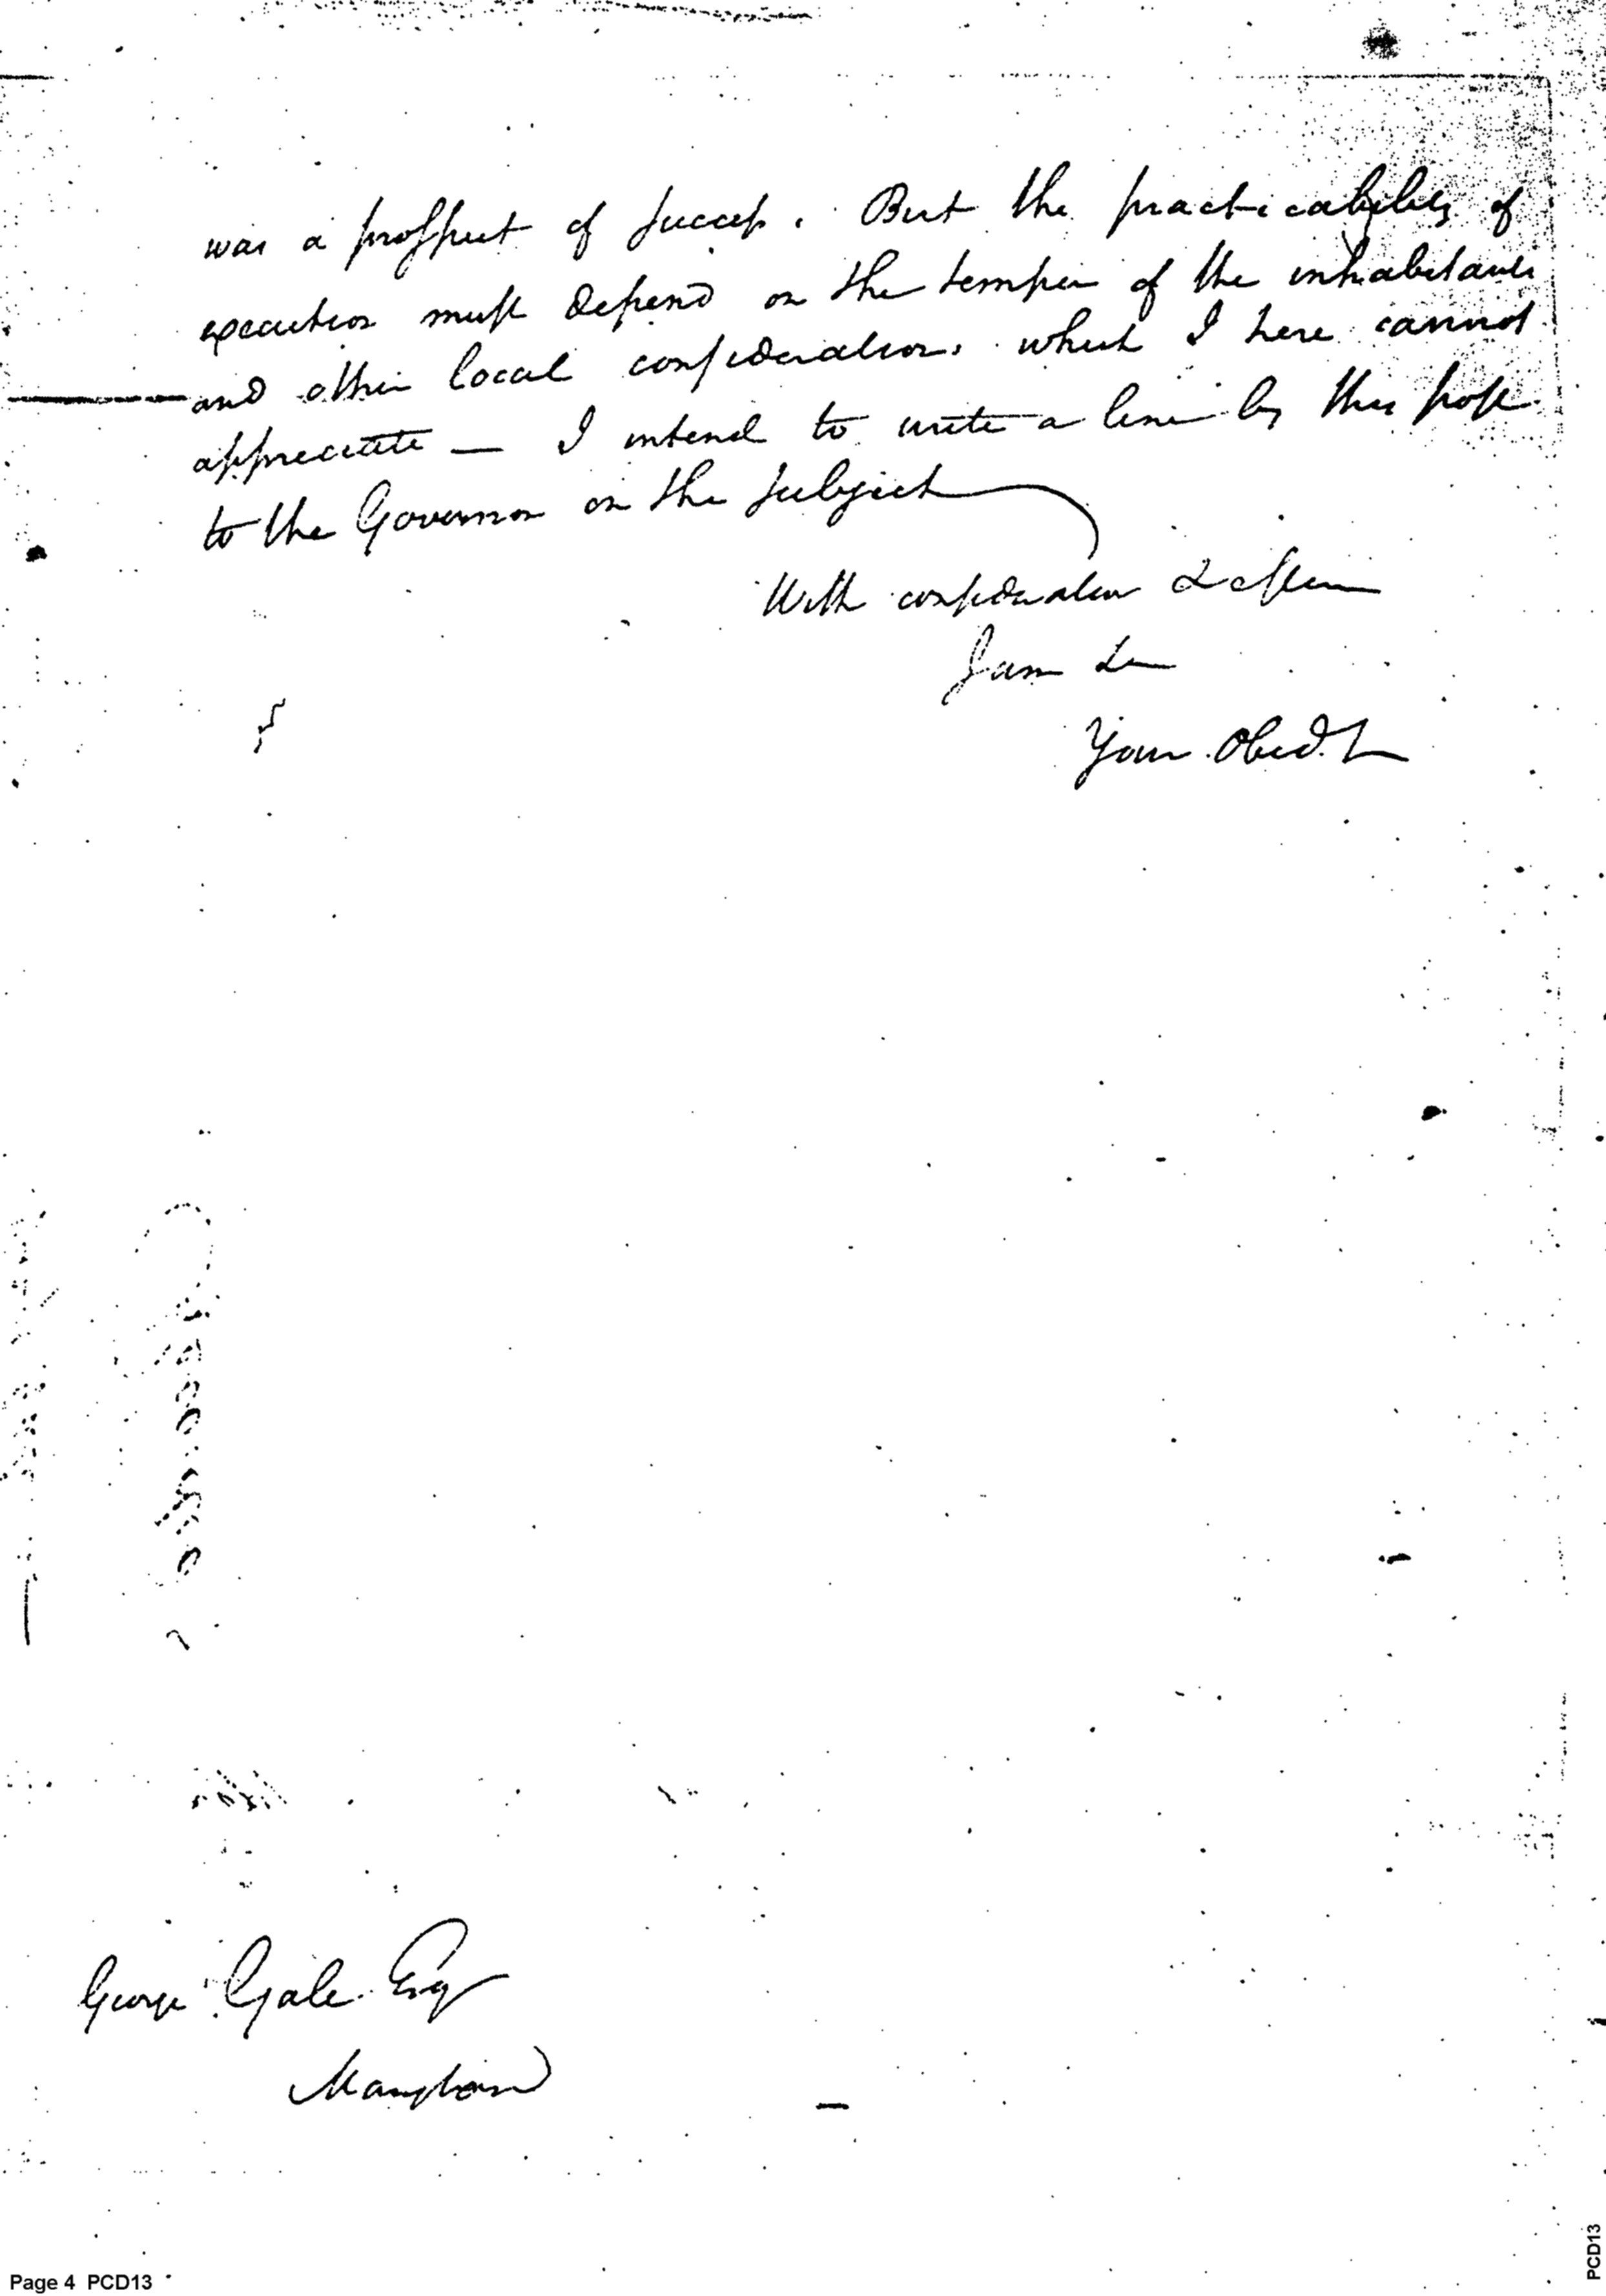 was a prosspect of success. But the practicability of
execution must depend on the temper of the inhabitants
and other local considerations which I here cannot
appreciate — I intend to write a line by this post
to the Governor on the subject
With consideration & esteem
I am &
Your Obed.
George Gale Esq
Maryland
Page 4 PCD13
PCD13